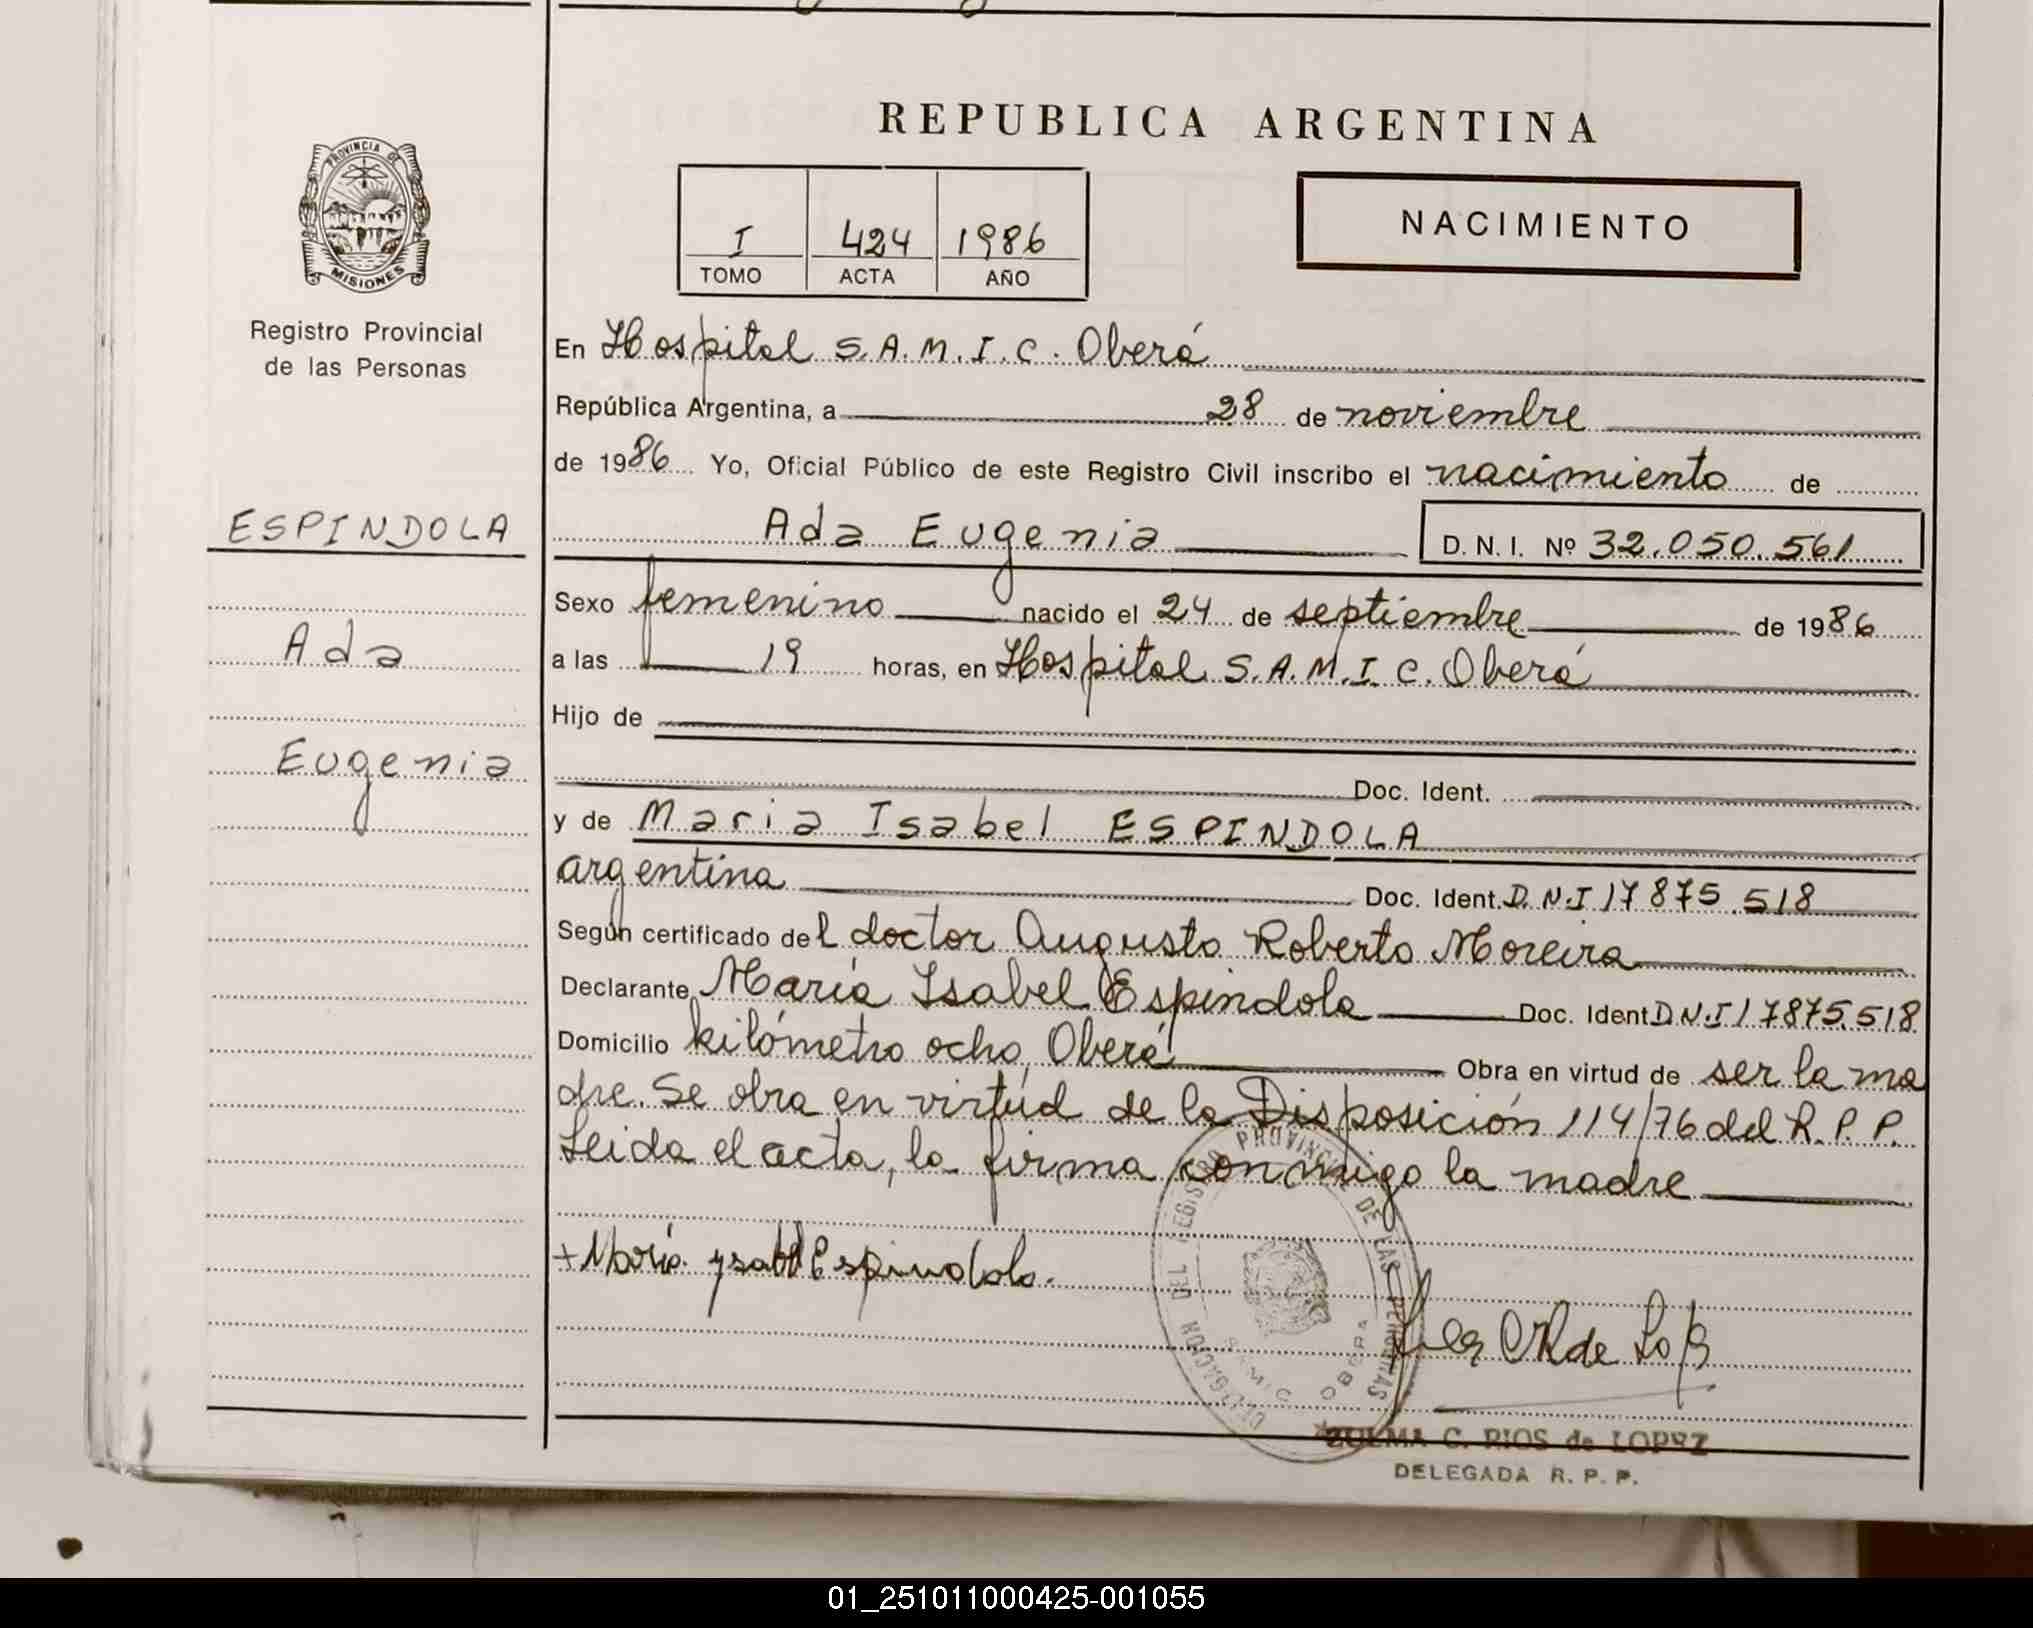 REPUBLICA ARGENTINA
PROVINCIA DE
MISIONES
Registro Provincial
de las Personas
I 424 1986
TOMO ACTA AÑO
NACIMIENTO
En Hospital S.A.M.I.C. Oberá
República Argentina, a 28 de noviembre
de 1986 Yo, Oficial Público de este Registro Civil inscribo el nacimiento de
ESPINDOLA
Ada Eugenia D. N. I. Nº 32.050.561
Sexo femenino nacido el 24 de septiembre de 1986
Ada
a las 19 horas, en Hospital S.A.M.I.C. Oberá
Hijo de
Eugenia
Doc. Ident.
y de Maria Isabel ESPINDOLA
argentina Doc. Ident. D.N.I 17875.518
Según certificado del doctor Augusto Roberto Moreira
Declarante María Isabel Espindola Doc. Ident D.N.I 17875.518
Domicilio kilómetro ocho, Oberá Obra en virtud de ser la ma
dre. Se obra en virtúd de la Disposición 114/76 del R.P.P.
Leida el acta, la firma conmigo la madre
+ María ysabel Espindola.
DELEGACION DEL REGISTRO PROVINCIAL DE LAS PERSONAS
SAMIC OBERA
de
ZULMA C. RIOS de LOPEZ
DELEGADA R. P. P.
01_251011000425-001055